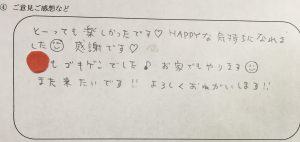 ④ ご意見ご感想など
とーっても楽しかったです♡ HAPPYな気持ちになれま
した☺ 感謝です♡
もゴキゲンでした♪ お家でもやります☺
また来たいです!! よろしくおねがいします!!